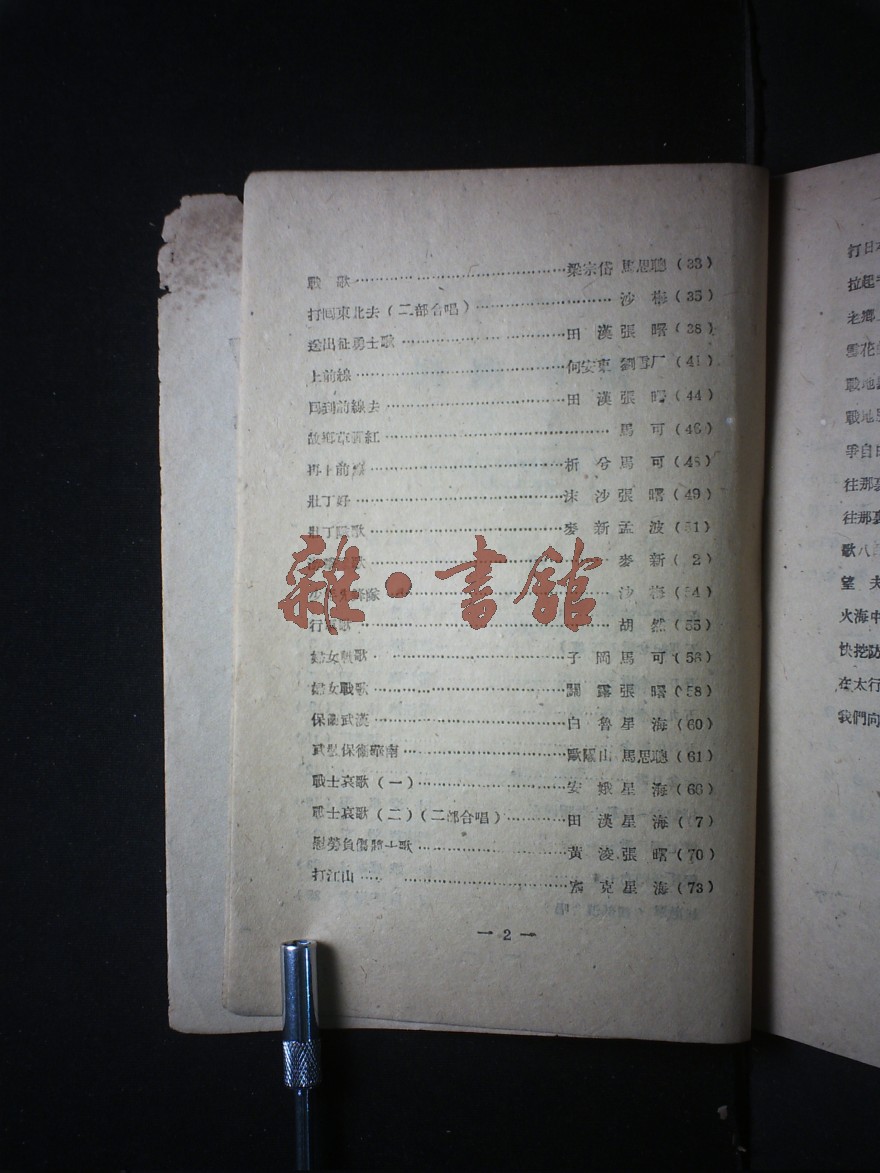 戰 歌……梁宗岱 馬思聰(33)
打回東北去(二部合唱)……沙 梅(35)
送出征勇士歌……田 漢 張 曙(38)
上前線……何安東 劉雪厂(41)
回到前線去……田 漢 張 曙(44)
故鄉草西紅……馬 可(46)
再上前線……析 兮 馬 可(48)
壯丁好……沫 沙 張 曙(49)
壯丁隊歌……麥 新 孟 波(51)
歌……麥 新( 2)
沙 梅(54)
行軍歌……胡 然(55)
婦女戰歌……子 岡 馬 可(56)
婦女戰歌……關 露 張 曙(58)
保衛武漢……白 魯 星 海(60)
武裝保衛華南……歐陽山 馬思聰(61)
戰士哀歌(一)……安 娥 星 海(66)
戰士哀歌(二)(二部合唱)……田 漢 星 海( 7)
慰勞負傷將士歌……黃 凌 張 曙(70)
打江山……塞 克 星 海(73)
— 2 —
雜·書館
打日本
拉起
老鄉
雪花
戰地
戰地
爭自由
往那裏
往那裏
歌八
望 夫
火海中
快挖防
在太行
我們向